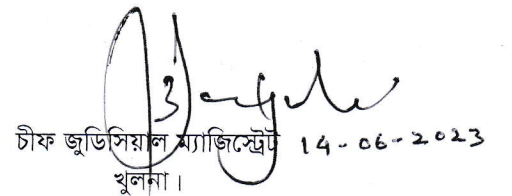 চীফ জুডিসিয়াল ম্যাজিস্ট্রেট 14-06-2023
খুলনা।